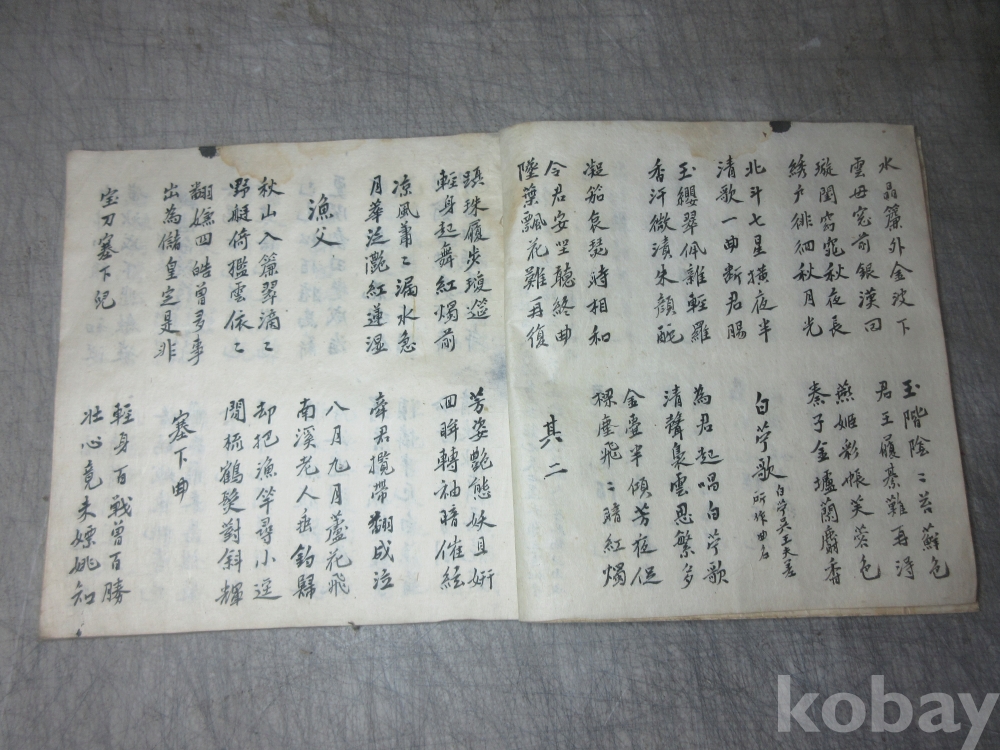 水晶簾外金波下
雲母窓前銀漢回
玉階陰〻苔蘚色
君王履綦難再得
璇閨窈窕秋夜長
綉户徘徊秋月光
燕姬彩帳芙蓉色
秦子金壚蘭麝香
北斗七星橫夜半
清歌一曲斷君腸
白苧歌 白苧吳王夫差
所作曲名
玉纓翠佩雜輕羅
香汗微漬朱顔酡
為君起唱白苧歌
清聲裊雲思繁多
凝笳哀瑟時相和
金壺半傾芳夜促
裸塵飛〻暗紅燭
令君安坐聽終曲
墜葉飄花難再復
其二
躡珠履步瓊筵
輕身起舞紅燭前
芳姿艶態妖且妍
回眸轉袖暗催絃
凉風蕭〻漏水急
月華泛灧紅蓮濕
牽君攬帶翻成泣
漁父
八月九月蘆花飛
南溪老人垂釣歸
秋山入簾翠滴〻
野艇倚檻雲依〻
却把漁竿尋小逕
閒梳鶴髮對斜輝
翻嫌四皓曾多事
出為儲皇定是非
塞下曲
宝刀塞下児
輕身百戰曾百勝
壯心竟未嫖姚知
kobay